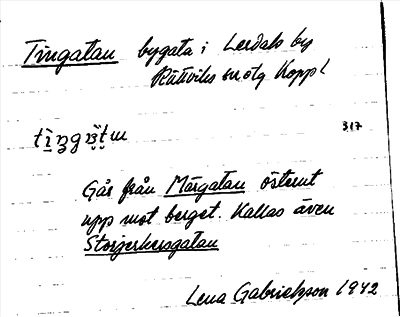 Tingatan bygata i Lerdals by
Rättviks sn otg Koppl
317
Går från Mårgatan österut
upp mot berget. Kallas även
Storjerkersgatan
Lena Gabrielsson 1942